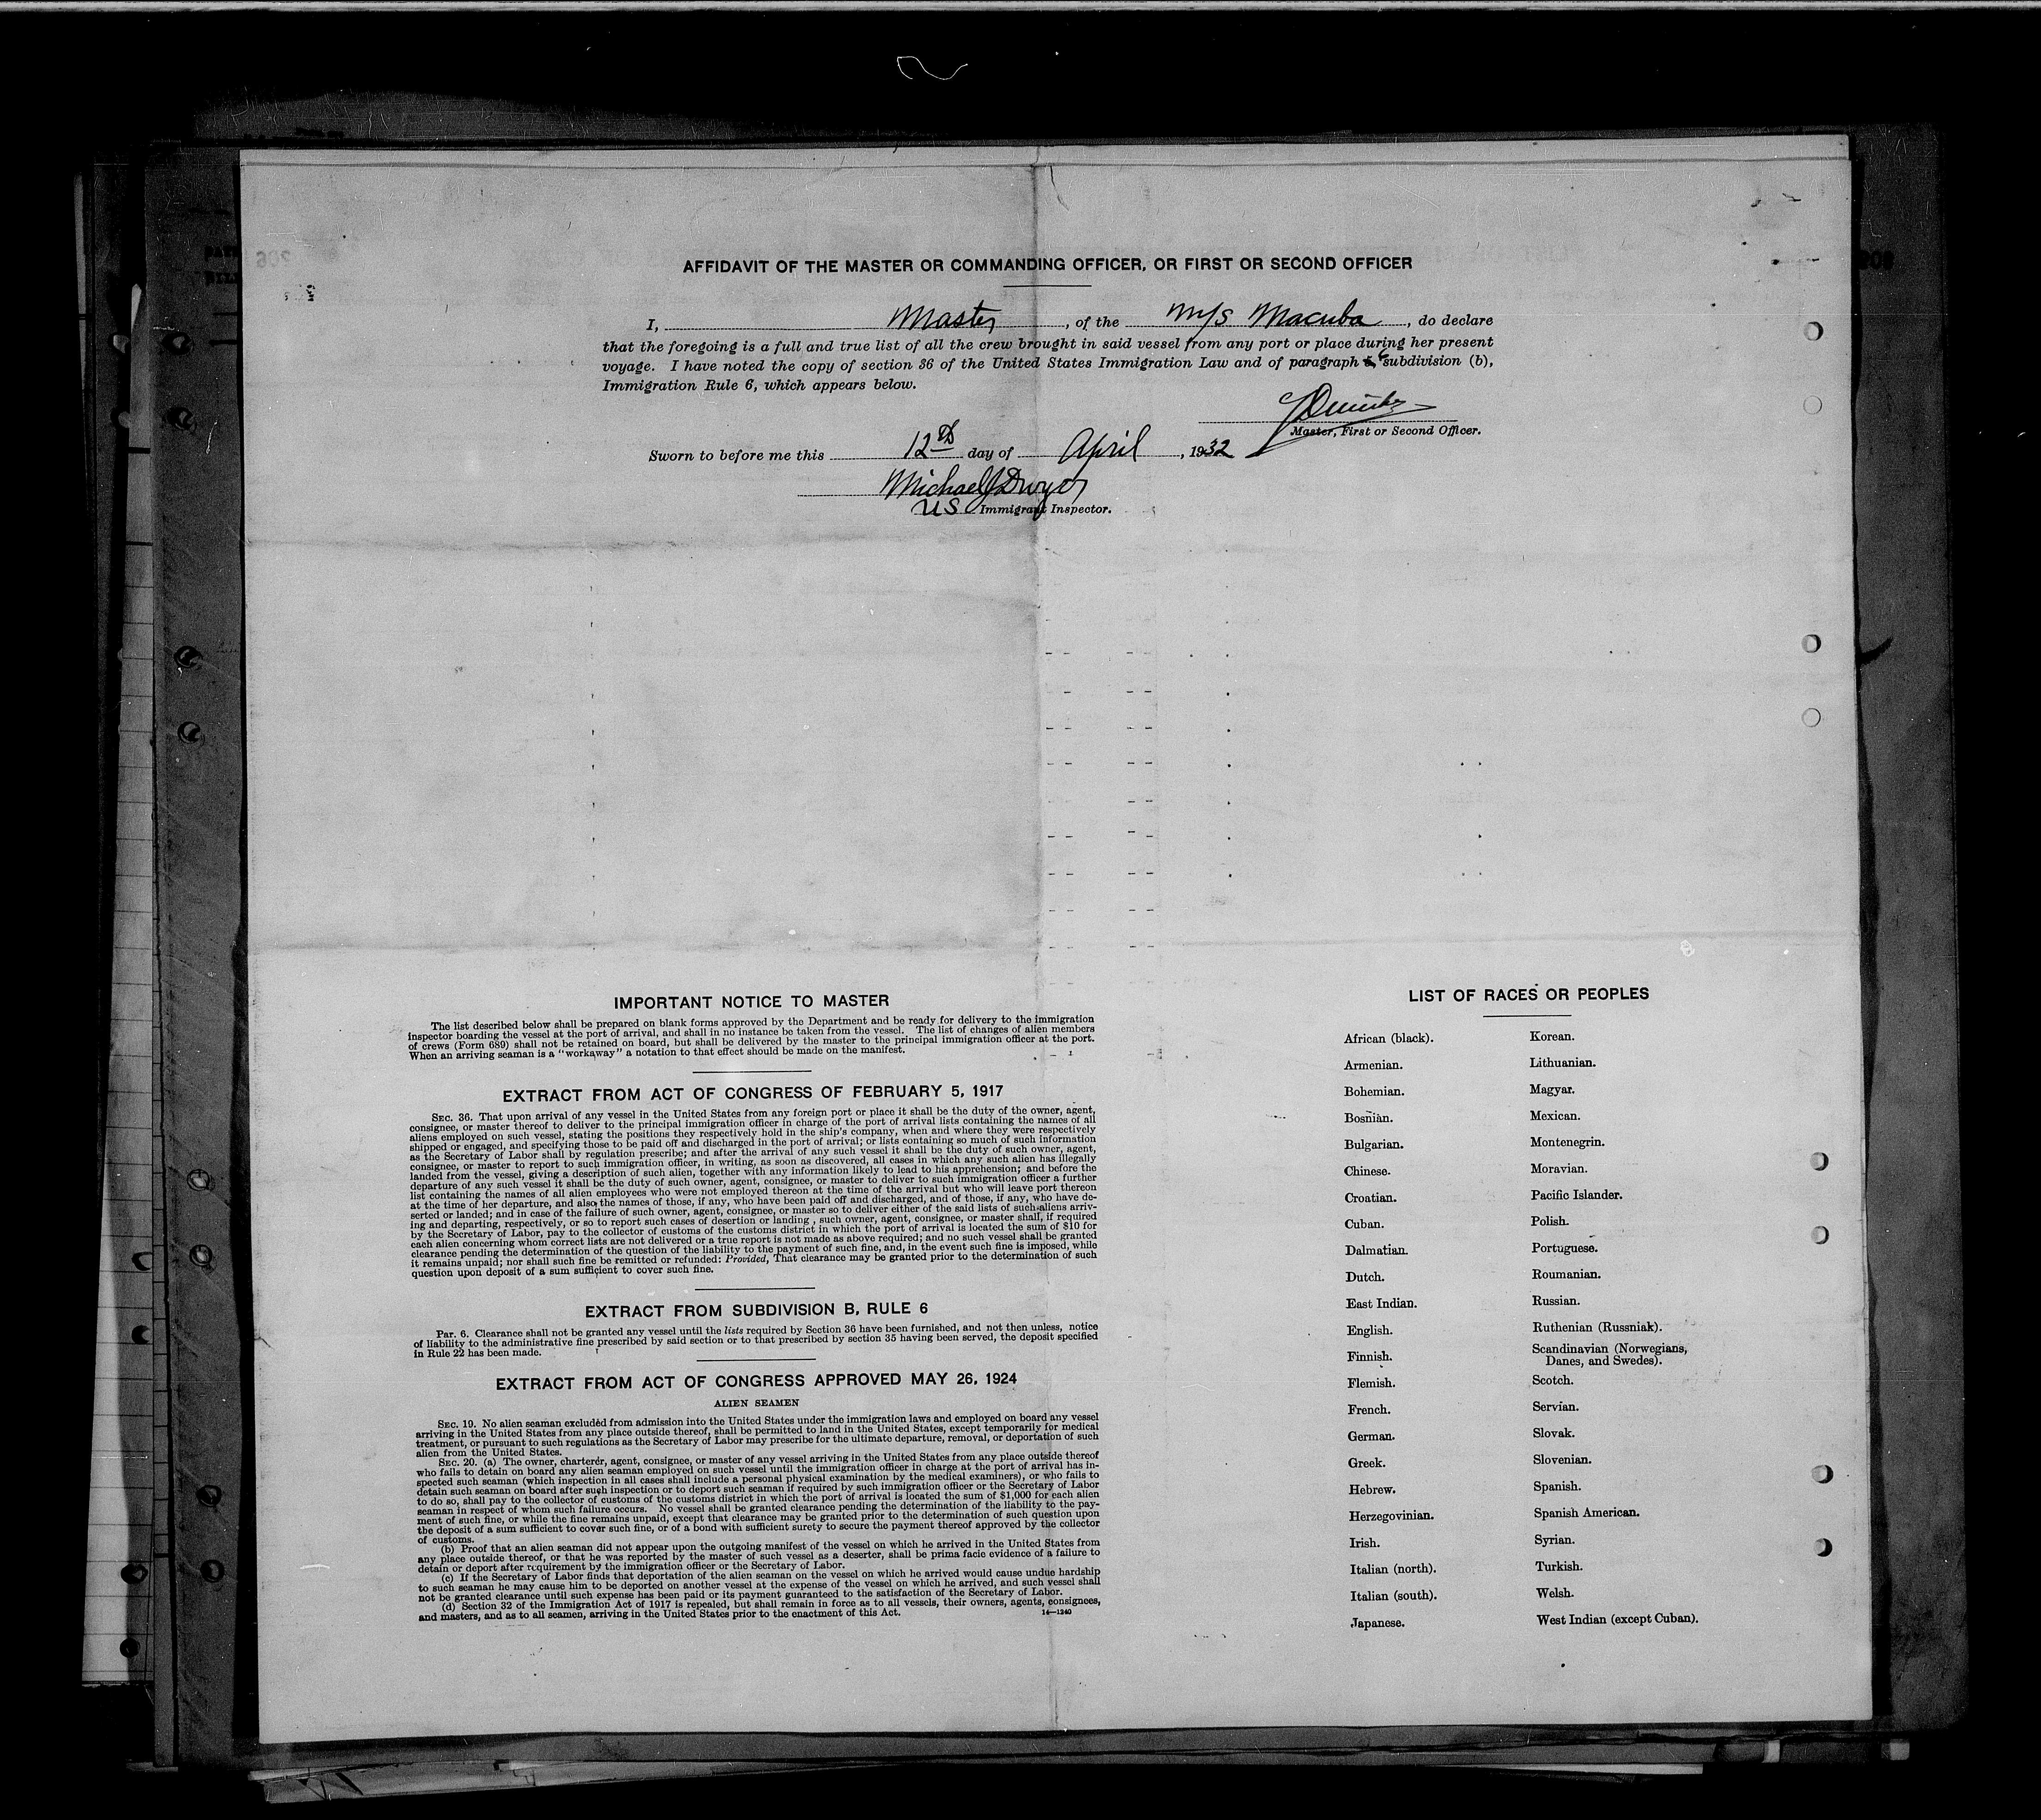 AFFIDAVIT OF THE MASTER OR COMMANDING OFFICER, OR FIRST OR SECOND OFFICER
I, Master, of the M/S Macuba, do declare
that the foregoing is a full and true list of all the crew brought in said vessel from any port or place during her present
voyage. I have noted the copy of section 36 of the United States Immigration Law and of paragraph 6 subdivision (b),
Immigration Rule 6, which appears below.
Master, First or Second Officer.
Sworn to before me this 12th day of April, 1932
Michael J Dwyer
US Immigrant Inspector.
IMPORTANT NOTICE TO MASTER
The list described below shall be prepared on blank forms approved by the Department and be ready for delivery to the immigration
inspector boarding the vessel at the port of arrival, and shall in no instance be taken from the vessel. The list of changes of alien members
of crews (Form 689) shall not be retained on board, but shall be delivered by the master to the principal immigration officer at the port.
When an arriving seaman is a "workaway" a notation to that effect should be made on the manifest.
EXTRACT FROM ACT OF CONGRESS OF FEBRUARY 5, 1917
SEC. 36. That upon arrival of any vessel in the United States from any foreign port or place it shall be the duty of the owner, agent,
consignee, or master thereof to deliver to the principal immigration officer in charge of the port of arrival lists containing the names of all
aliens employed on such vessel, stating the positions they respectively hold in the ship's company, when and where they were respectively
shipped or engaged, and specifying those to be paid off and discharged in the port of arrival; or lists containing so much of such information
as the Secretary of Labor shall by regulation prescribe; and after the arrival of any such vessel it shall be the duty of such owner, agent,
consignee, or master to report to such immigration officer, in writing, as soon as discovered, all cases in which any such alien has illegally
landed from the vessel, giving a description of such alien, together with any information likely to lead to his apprehension; and before the
departure of any such vessel it shall be the duty of such owner, agent, consignee, or master to deliver to such immigration officer a further
list containing the names of all alien employees who were not employed thereon at the time of the arrival but who will leave port thereon
at the time of her departure, and also the names of those, if any, who have been paid off and discharged, and of those, if any, who have de-
serted or landed; and in case of the failure of such owner, agent, consignee, or master so to deliver either of the said lists of such aliens arriv-
ing and departing, respectively, or so to report such cases of desertion or landing, such owner, agent, consignee, or master shall, if required
by the Secretary of Labor, pay to the collector of customs of the customs district in which the port of arrival is located the sum of $10 for
each alien concerning whom correct lists are not delivered or a true report is not made as above required; and no such vessel shall be granted
clearance pending the determination of the question of the liability to the payment of such fine, and, in the event such fine is imposed, while
it remains unpaid; nor shall such fine be remitted or refunded: Provided, That clearance may be granted prior to the determination of such
question upon deposit of a sum sufficient to cover such fine.
EXTRACT FROM SUBDIVISION B, RULE 6
Par. 6. Clearance shall not be granted any vessel until the lists required by Section 36 have been furnished, and not then unless, notice
of liability to the administrative fine prescribed by said section or to that prescribed by section 35 having been served, the deposit specified
in Rule 22 has been made.
EXTRACT FROM ACT OF CONGRESS APPROVED MAY 26, 1924
ALIEN SEAMEN
SEC. 19. No alien seaman excluded from admission into the United States under the immigration laws and employed on board any vessel
arriving in the United States from any place outside thereof, shall be permitted to land in the United States, except temporarily for medical
treatment, or pursuant to such regulations as the Secretary of Labor may prescribe for the ultimate departure, removal, or deportation of such
alien from the United States.
SEC. 20. (a) The owner, charterer, agent, consignee, or master of any vessel arriving in the United States from any place outside thereof
who fails to detain on board any alien seaman employed on such vessel until the immigration officer in charge at the port of arrival has in-
spected such seaman (which inspection in all cases shall include a personal physical examination by the medical examiners), or who fails to
detain such seaman on board after such inspection or to deport such seaman if required by such immigration officer or the Secretary of Labor
to do so, shall pay to the collector of customs of the customs district in which the port of arrival is located the sum of $1,000 for each alien
seaman in respect of whom such failure occurs. No vessel shall be granted clearance pending the determination of the liability to the pay-
ment of such fine, or while the fine remains unpaid, except that clearance may be granted prior to the determination of such question upon
the deposit of a sum sufficient to cover such fine, or of a bond with sufficient surety to secure the payment thereof approved by the collector
of customs.
(b) Proof that an alien seaman did not appear upon the outgoing manifest of the vessel on which he arrived in the United States from
any place outside thereof, or that he was reported by the master of such vessel as a deserter, shall be prima facie evidence of a failure to
detain or deport after requirement by the immigration officer or the Secretary of Labor.
(c) If the Secretary of Labor finds that deportation of the alien seaman on the vessel on which he arrived would cause undue hardship
to such seaman he may cause him to be deported on another vessel at the expense of the vessel on which he arrived, and such vessel shall
not be granted clearance until such expense has been paid or its payment guaranteed to the satisfaction of the Secretary of Labor.
(d) Section 32 of the Immigration Act of 1917 is repealed, but shall remain in force as to all vessels, their owners, agents, consignees,
and masters, and as to all seamen, arriving in the United States prior to the enactment of this Act. 14—1240
LIST OF RACES OR PEOPLES
African (black).
Armenian.
Bohemian.
Bosnian.
Bulgarian.
Chinese.
Croatian.
Cuban.
Dalmatian.
Dutch.
East Indian.
English.
Finnish.
Flemish.
French.
German.
Greek.
Hebrew.
Herzegovinian.
Irish.
Italian (north).
Italian (south).
Japanese.
Korean.
Lithuanian.
Magyar.
Mexican.
Montenegrin.
Moravian.
Pacific Islander.
Polish.
Portuguese.
Roumanian.
Russian.
Ruthenian (Russniak).
Scandinavian (Norwegians,
Danes, and Swedes).
Scotch.
Servian.
Slovak.
Slovenian.
Spanish.
Spanish American.
Syrian.
Turkish.
Welsh.
West Indian (except Cuban).